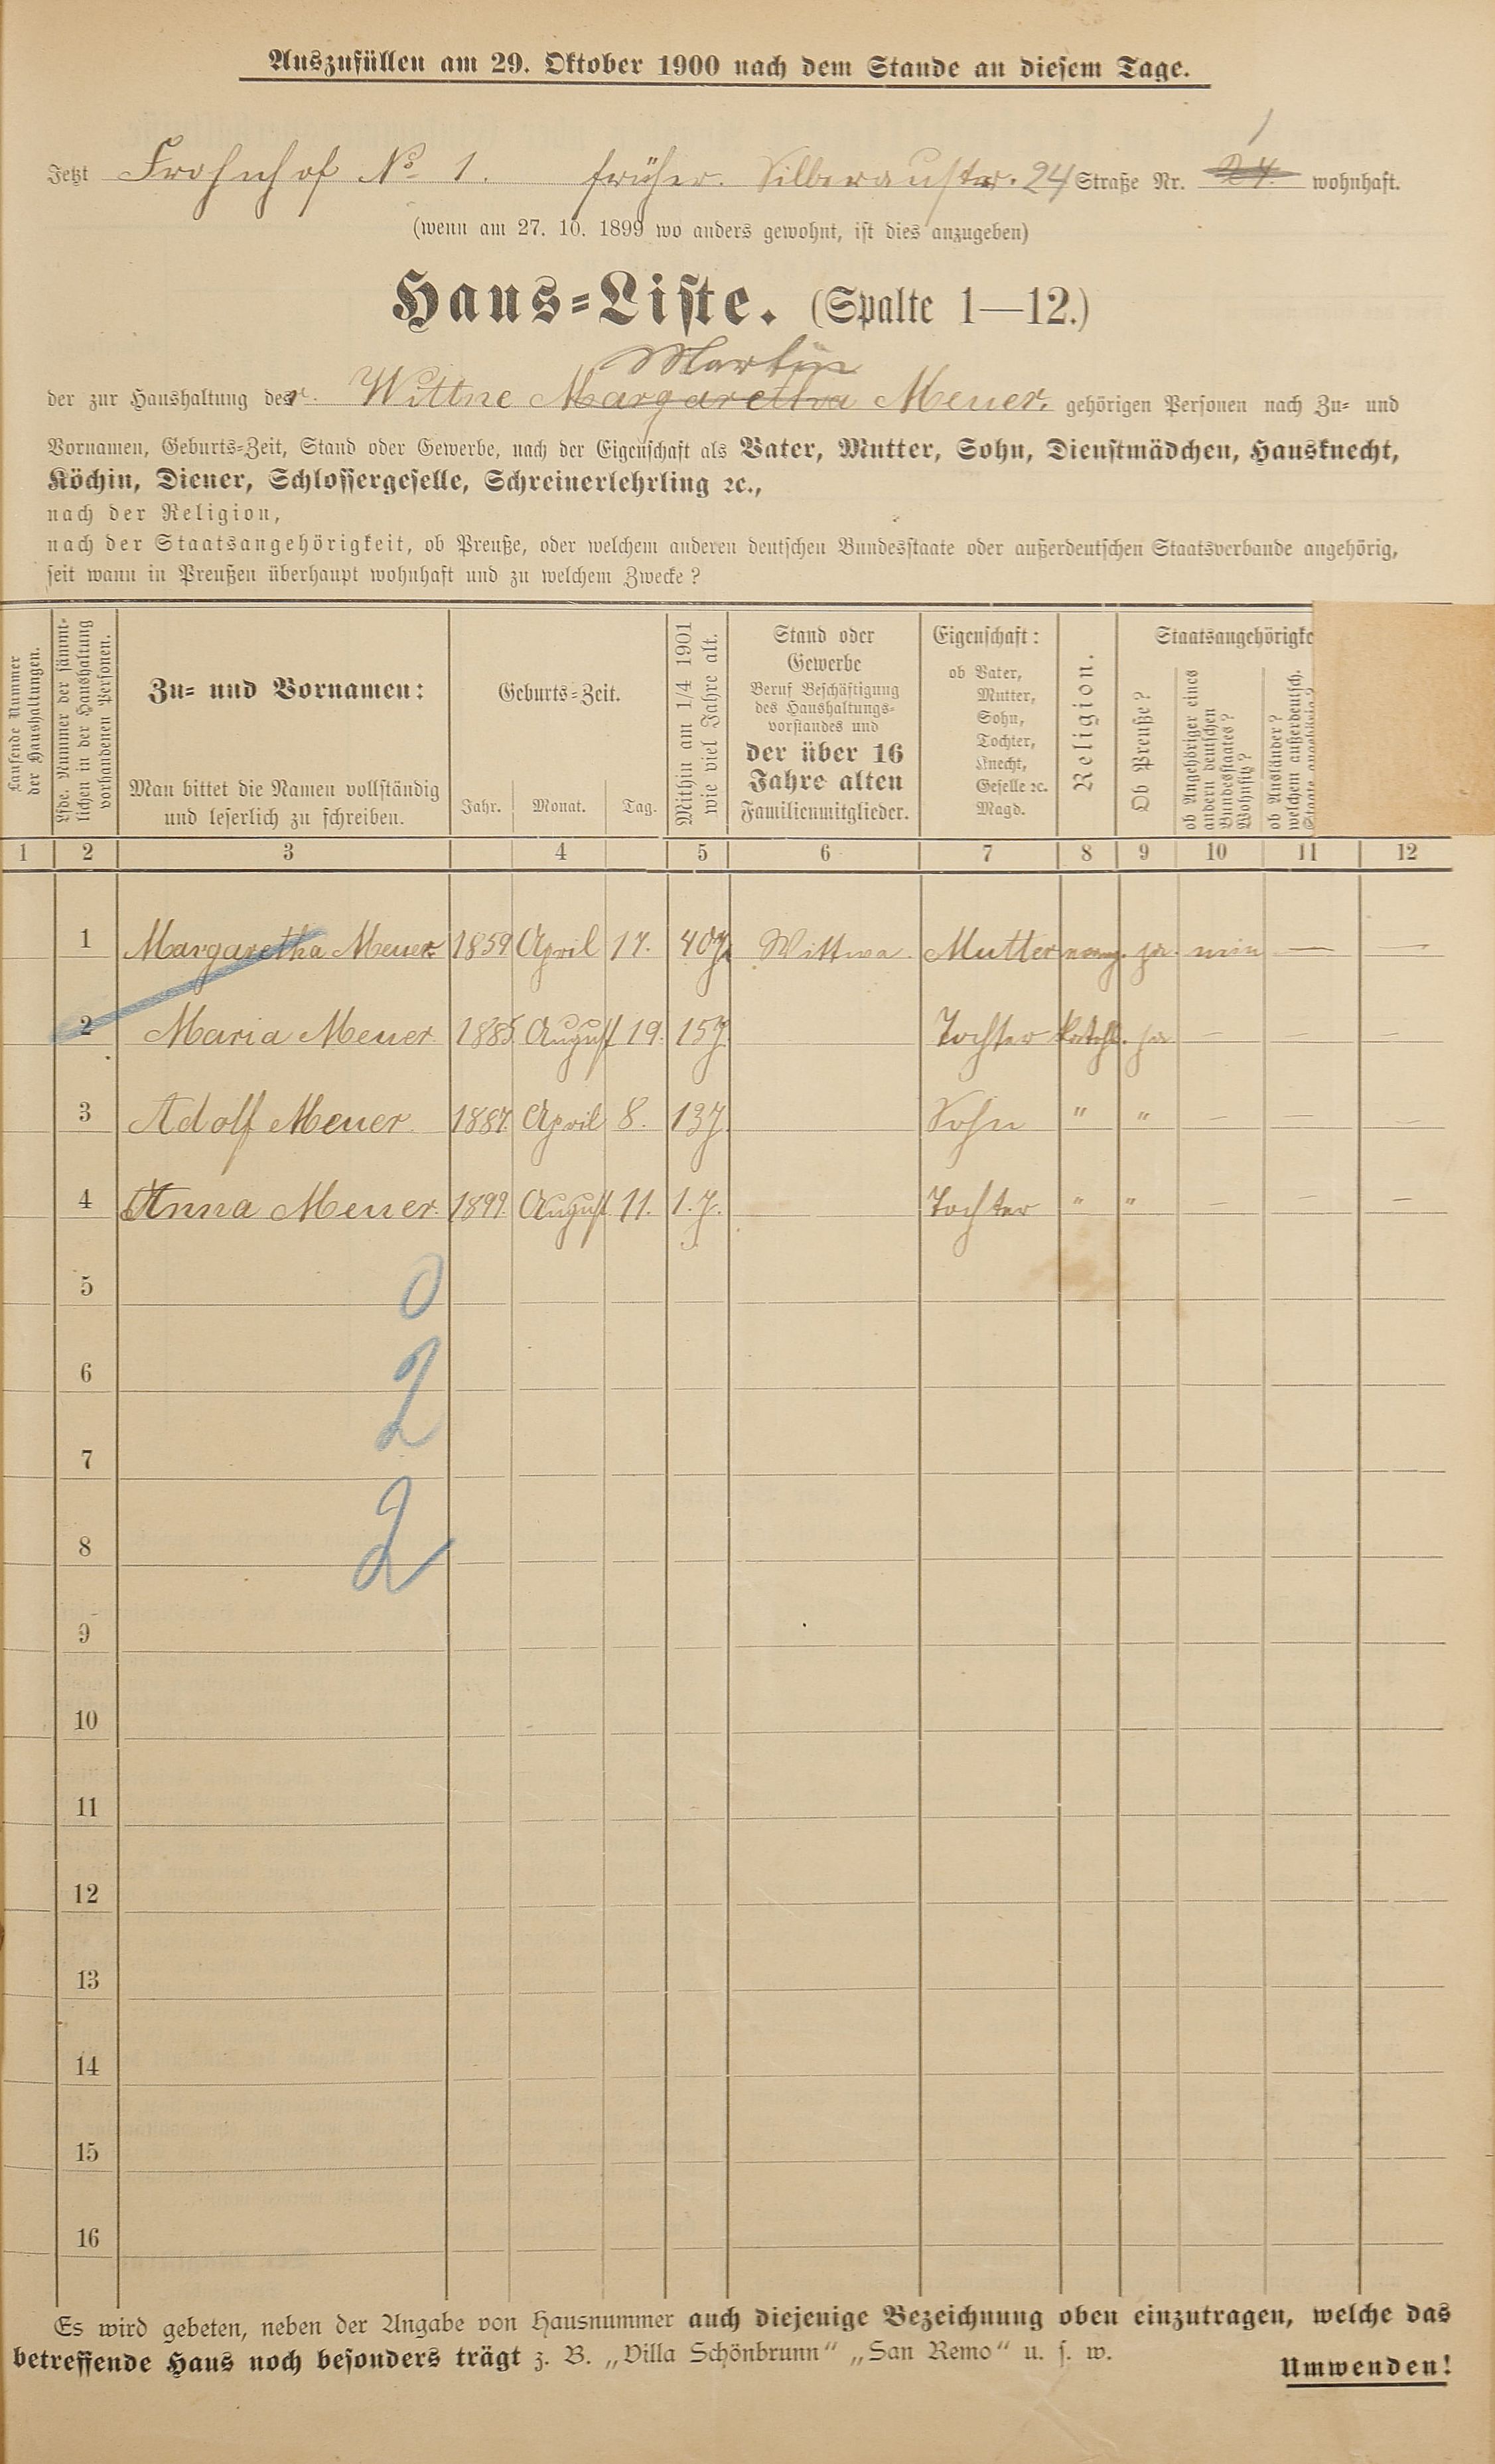 Auszufüllen am 29. Oktober 1900 nach dem Stande an diesem Tage.
1
Jetzt Frohnhof No 1. früher. Silberaustr. 24 Straße Nr. 24. wohnhaft.
(wenn am 27. 10. 1899 wo anders gewohnt, ist dies anzugeben)
Haus-Liste. (Spalte 1—12.)
Martin
der zur Haushaltung der. Wittwe Margaretha Meuer. gehörigen Personen nach Zu- und
Vornamen, Geburts-Zeit, Stand oder Gewerbe, nach der Eigenschaft als Vater, Mutter, Sohn, Dienstmädchen, Hausknecht,
Köchin, Diener, Schlossergeselle, Schreinerlehrling ꝛc.,
nach der Religion,
nach der Staatsangehörigkeit, ob Preuße, oder welchem anderen deutschen Bundesstaate oder außerdeutschen Staatsverbande angehörig,
seit wann in Preußen überhaupt wohnhaft und zu welchem Zwecke?
Laufende Nummer
der Haushaltungen.
Lfde. Nummer der sämmt-
lichen in der Haushaltung
vorhandenen Personen.
Zu- und Vornamen:
Man bittet die Namen vollständig
und leserlich zu schreiben.
Geburts-Zeit.
Jahr. Monat. Tag.
Mithin am 1/4 1901
wie viel Jahre alt.
Stand oder
Gewerbe
Beruf Beschäftigung
des Haushaltungs-
vorstandes und
der über 16
Jahre alten
Familienmitglieder.
Eigenschaft:
ob Vater,
Mutter,
Sohn,
Tochter,
Knecht,
Geselle ꝛc.
Magd.
Religion.
Staatsangehörigke
Ob Preuße?
ob Angehöriger eines
andern deutschen
Bundesstaates?
Wohnsitz?
ob Ausländer?
welchem außerdeutsch.
1 2 3 4 5 6 7 8 9 10 11 12
1 Margaretha Meuer 1859 April 17. 40J. Wittwe. Mutter ja. nein — —
2 Maria Meuer 1885 August 19. 15J. Tochter kathl. ja — — —
3 Adolf Meuer 1887. April 8. 13J. Sohn " " — — —
4 Anna Meuer. 1899. August 11. 1.J. Tochter " " — — —
5 0
6 2
7
8 2
9
10
11
12
13
14
15
16
Es wird gebeten, neben der Angabe von Hausnummer auch diejenige Bezeichnung oben einzutragen, welche das
betreffende Haus noch besonders trägt z. B. „Villa Schönbrunn“ „San Remo“ u. s. w.
Umwenden!